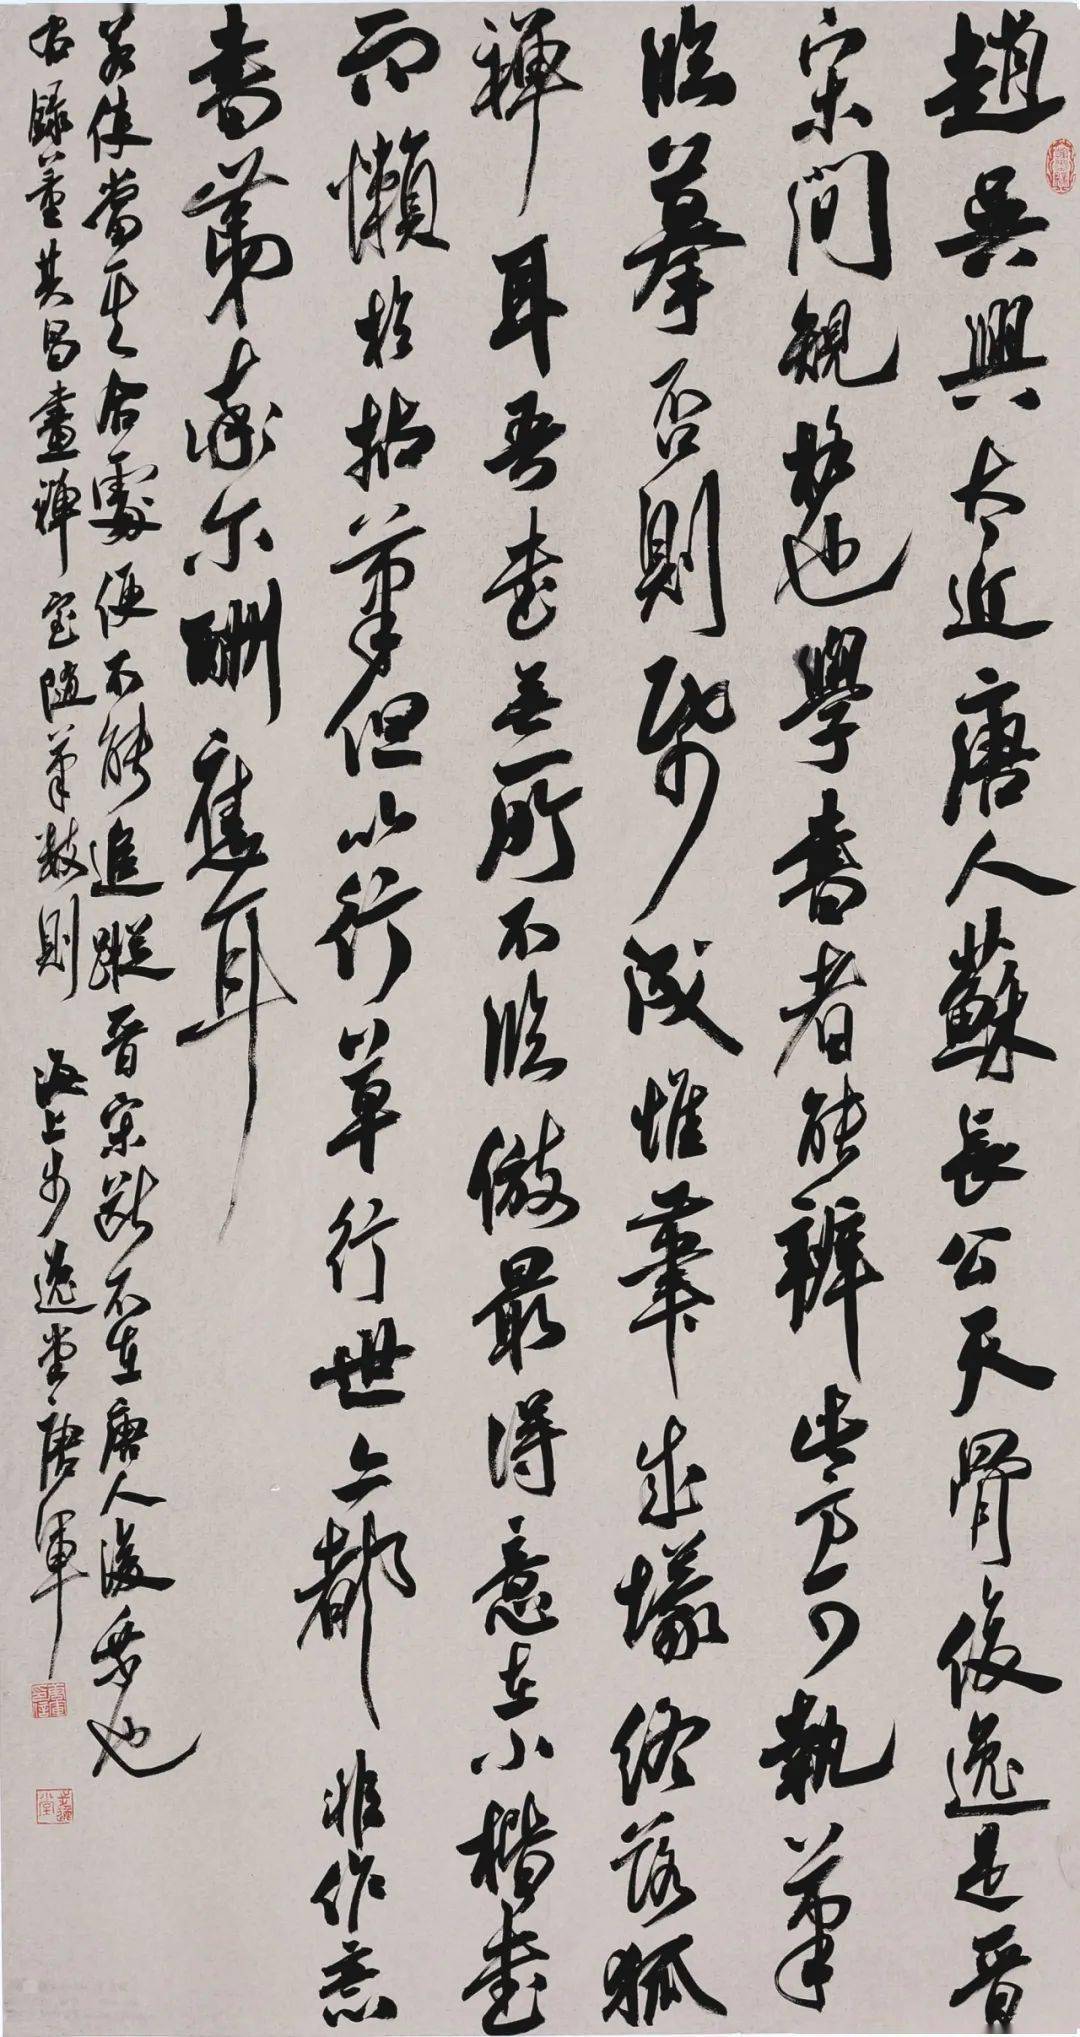 趙吳興大近唐人蘇長公天骨俊逸是晉
宋間規格也學書者能辨此方可執筆
臨摹否則帋成堆筆成塚終落狐
禪耳吾書無所不臨倣最得意在小楷書
而懶於拈筆但以行草行世亦都非作意
書第率尔酬應耳
若使當其合處便不能追蹤晉宋斷不在唐人後乘也
右録董其昌畫禪室隨筆數則 海上步逸堂唐軍
步逸堂